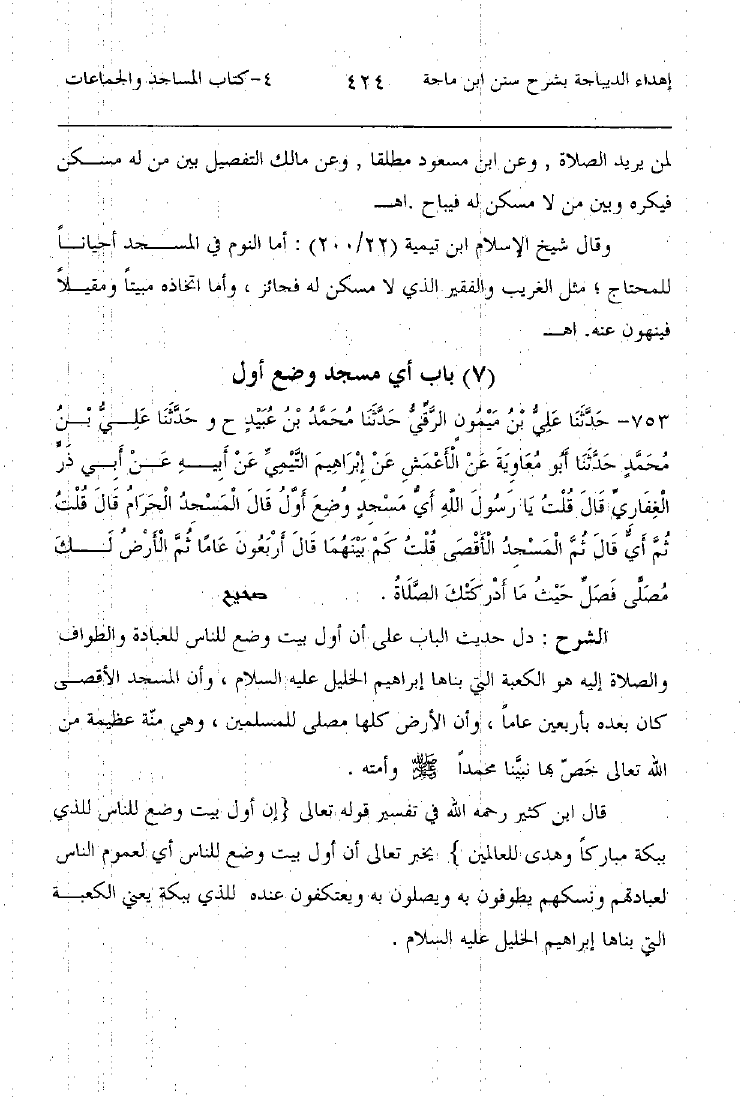 إهداء الديباجة بشرح سنن ابن ماجة ٤٢٤ ٤- كتاب المساجد والجماعات
لمن يريد الصلاة , وعن ابن مسعود مطلقا , وعن مالك التفصيل بين من له مسكن
فيكره وبين من لا مسكن له فيباح .اهـ
وقال شيخ الإسلام ابن تيمية (٢٠٠/٢٢) : أما النوم في المسجد أحياناً
للمحتاج ؛ مثل الغريب والفقير الذي لا مسكن له فجائز ، وأما اتخاذه مبيتاً ومقيلاً
فينهون عنه. اهـ
(٧) باب أي مسجد وضع أول
٧٥٣- حَدَّثَنَا عَلِيُّ بْنُ مَيْمُونٍ الرَّقِّيُّ حَدَّثَنَا مُحَمَّدُ بْنُ عُبَيْدٍ ح و حَدَّثَنَا عَلِيُّ بْنُ
مُحَمَّدٍ حَدَّثَنَا أَبُو مُعَاوِيَةَ عَنْ الْأَعْمَشِ عَنْ إِبْرَاهِيمَ التَّيْمِيِّ عَنْ أَبِيهِ عَنْ أَبِي ذَرٍّ
الْغِفَارِيِّ قَالَ قُلْتُ يَا رَسُولَ اللَّهِ أَيُّ مَسْجِدٍ وُضِعَ أَوَّلُ قَالَ الْمَسْجِدُ الْحَرَامُ قَالَ قُلْتُ
ثُمَّ أَيٌّ قَالَ ثُمَّ الْمَسْجِدُ الْأَقْصَى قُلْتُ كَمْ بَيْنَهُمَا قَالَ أَرْبَعُونَ عَامًا ثُمَّ الْأَرْضُ لَكَ
مُصَلًّى فَصَلِّ حَيْثُ مَا أَدْرَكَتْكَ الصَّلَاةُ . صحيح
الشرح : دل حديث الباب على أن أول بيت وضع للناس للعبادة والطواف
والصلاة إليه هو الكعبة التي بناها إبراهيم الخليل عليه السلام ، وأن المسجد الأقصى
كان بعده بأربعين عاماً ، وأن الأرض كلها مصلى للمسلمين ، وهي منّة عظيمة من
الله تعالى خَصّ بها نبيَّنا محمداً ﷺ وأمته .
قال ابن كثير رحمه الله في تفسير قوله تعالى {إن أول بيت وضع للناس للذي
ببكة مباركاً وهدى للعالمين } يخبر تعالى أن أول بيت وضع للناس أي لعموم الناس
لعبادتهم ونسكهم يطوفون به ويصلون به ويعتكفون عنده للذي ببكة يعني الكعبة
التي بناها إبراهيم الخليل عليه السلام .